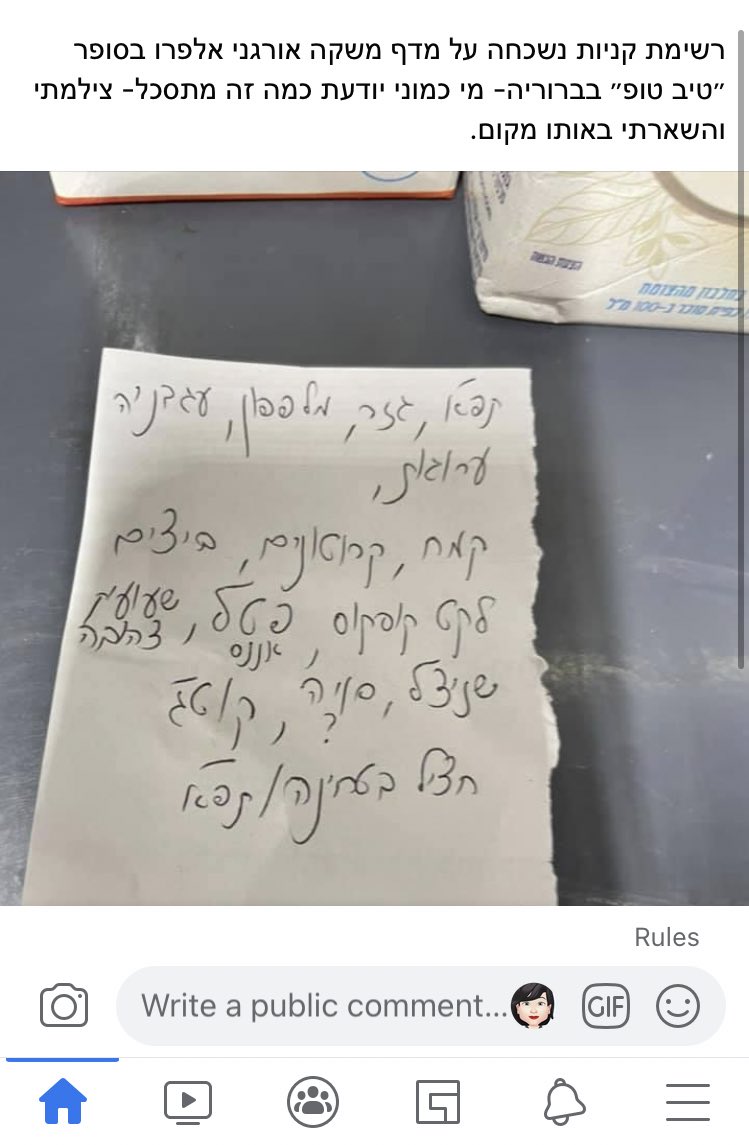 רשימת קניות נשכחה על מדף משקה אורגני אלפרו בסופר
״טיב טופ״ בברוריה- מי כמוני יודעת כמה זה מתסכל- צילמתי
והשארתי באותו מקום.
הצעת הגשה
בחלבון מהצומח
סוכר ב-100 מ"ל
תפו"א, גזר, מלפפון, עגבניה
ערוגות,
קמח, קרוטונים, ביצים
לקט קוסקוס, פטל, שעועית
אננס צהובה
שניצל, סויה, קוטג'
?
חציל בטחינה/תפו"א
Rules
Write a public comment...
GIF